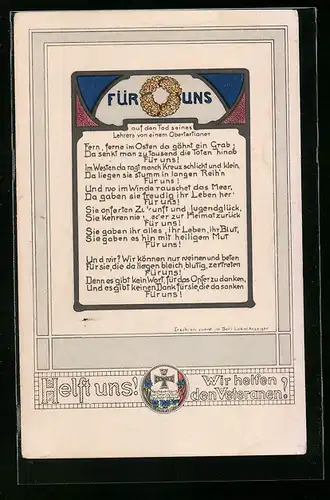 FÜR UNS
auf den Tod seines
Lehrers von einem Obertertianer
Fern, ferne im Osten da gähnt ein Grab;
Da senkt man zu tausend die Toten hinab
Für uns!
Im Westen da ragt manch Kreuz schlicht und klein,
Da liegen sie stumm in langen Reih'n
Für uns!
Und wo im Winde rauschet das Meer,
Da gaben sie freudig ihr Leben her
Für uns!
Sie opferten Zukunft und Jugendglück,
Sie kehren nie wieder zur Heimat zurück
Für uns!
Sie gaben ihr alles, ihr Leben, ihr Blut,
Sie gaben es hin mit heiligem Mut
Für uns!
Und wir? Wir können nur weinen und beten
Für sie, die da liegen bleich, blutig, zertreten
Für uns!
Denn es gibt kein Wort, für das Opfer zu danken,
Und es gibt keinen Dank für sie, die da sanken
Für uns!
Erschien zuerst im Berl. Lokal Anzeiger
Helft uns! Wir helfen
den Veteranen!